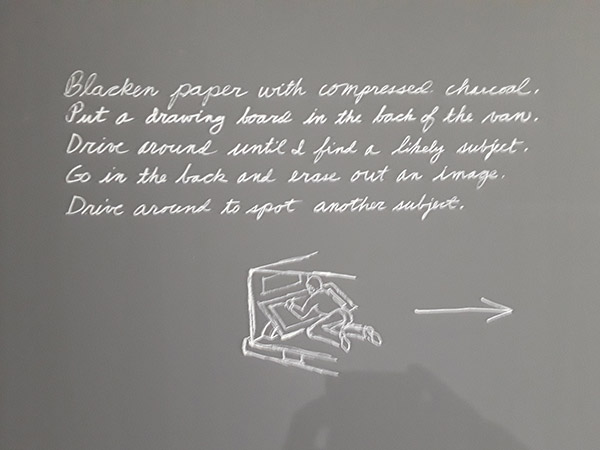 Blacken paper with compressed charcoal.
Put a drawing board in the back of the van.
Drive around until I find a likely subject.
Go in the back and erase out an image.
Drive around to spot another subject.